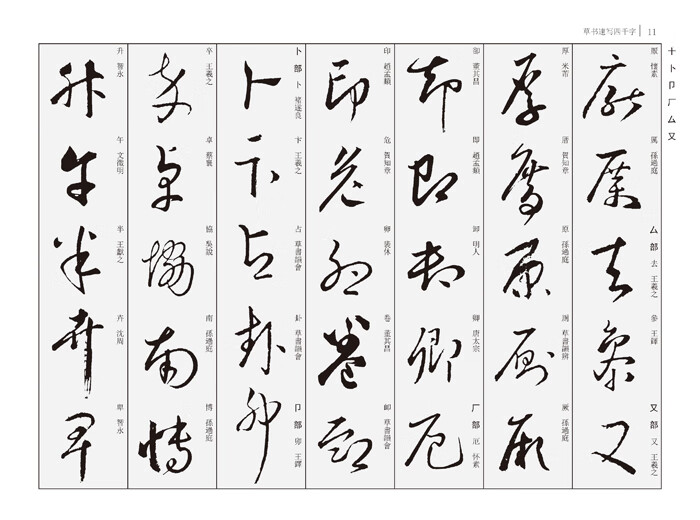 草书速写四千字 11
十卜卩厂厶又
升 智永
午 文徵明
半 王獻之
卉 沈周
卑 智永
卒 王羲之
卓 蔡襄
協 吳說
南 孫過庭
博 孫過庭
卜部 卜 褚遂良
卞 王羲之
占 草書韻會
卦 草書韻會
卩部 卯 王鐸
印 趙孟頫
危 賀知章
卵 裴休
卷 董其昌
草書韻會
董其昌
即 趙孟頫
卸 明人
卿 唐太宗
厂部 厄 怀素
厚 米芾
賀知章
原 孫過庭
草書韻辨
厥 孫過庭
厭 懷素
厲 孫過庭
厶部 去 王羲之
參 王鐸
又部 又 王羲之